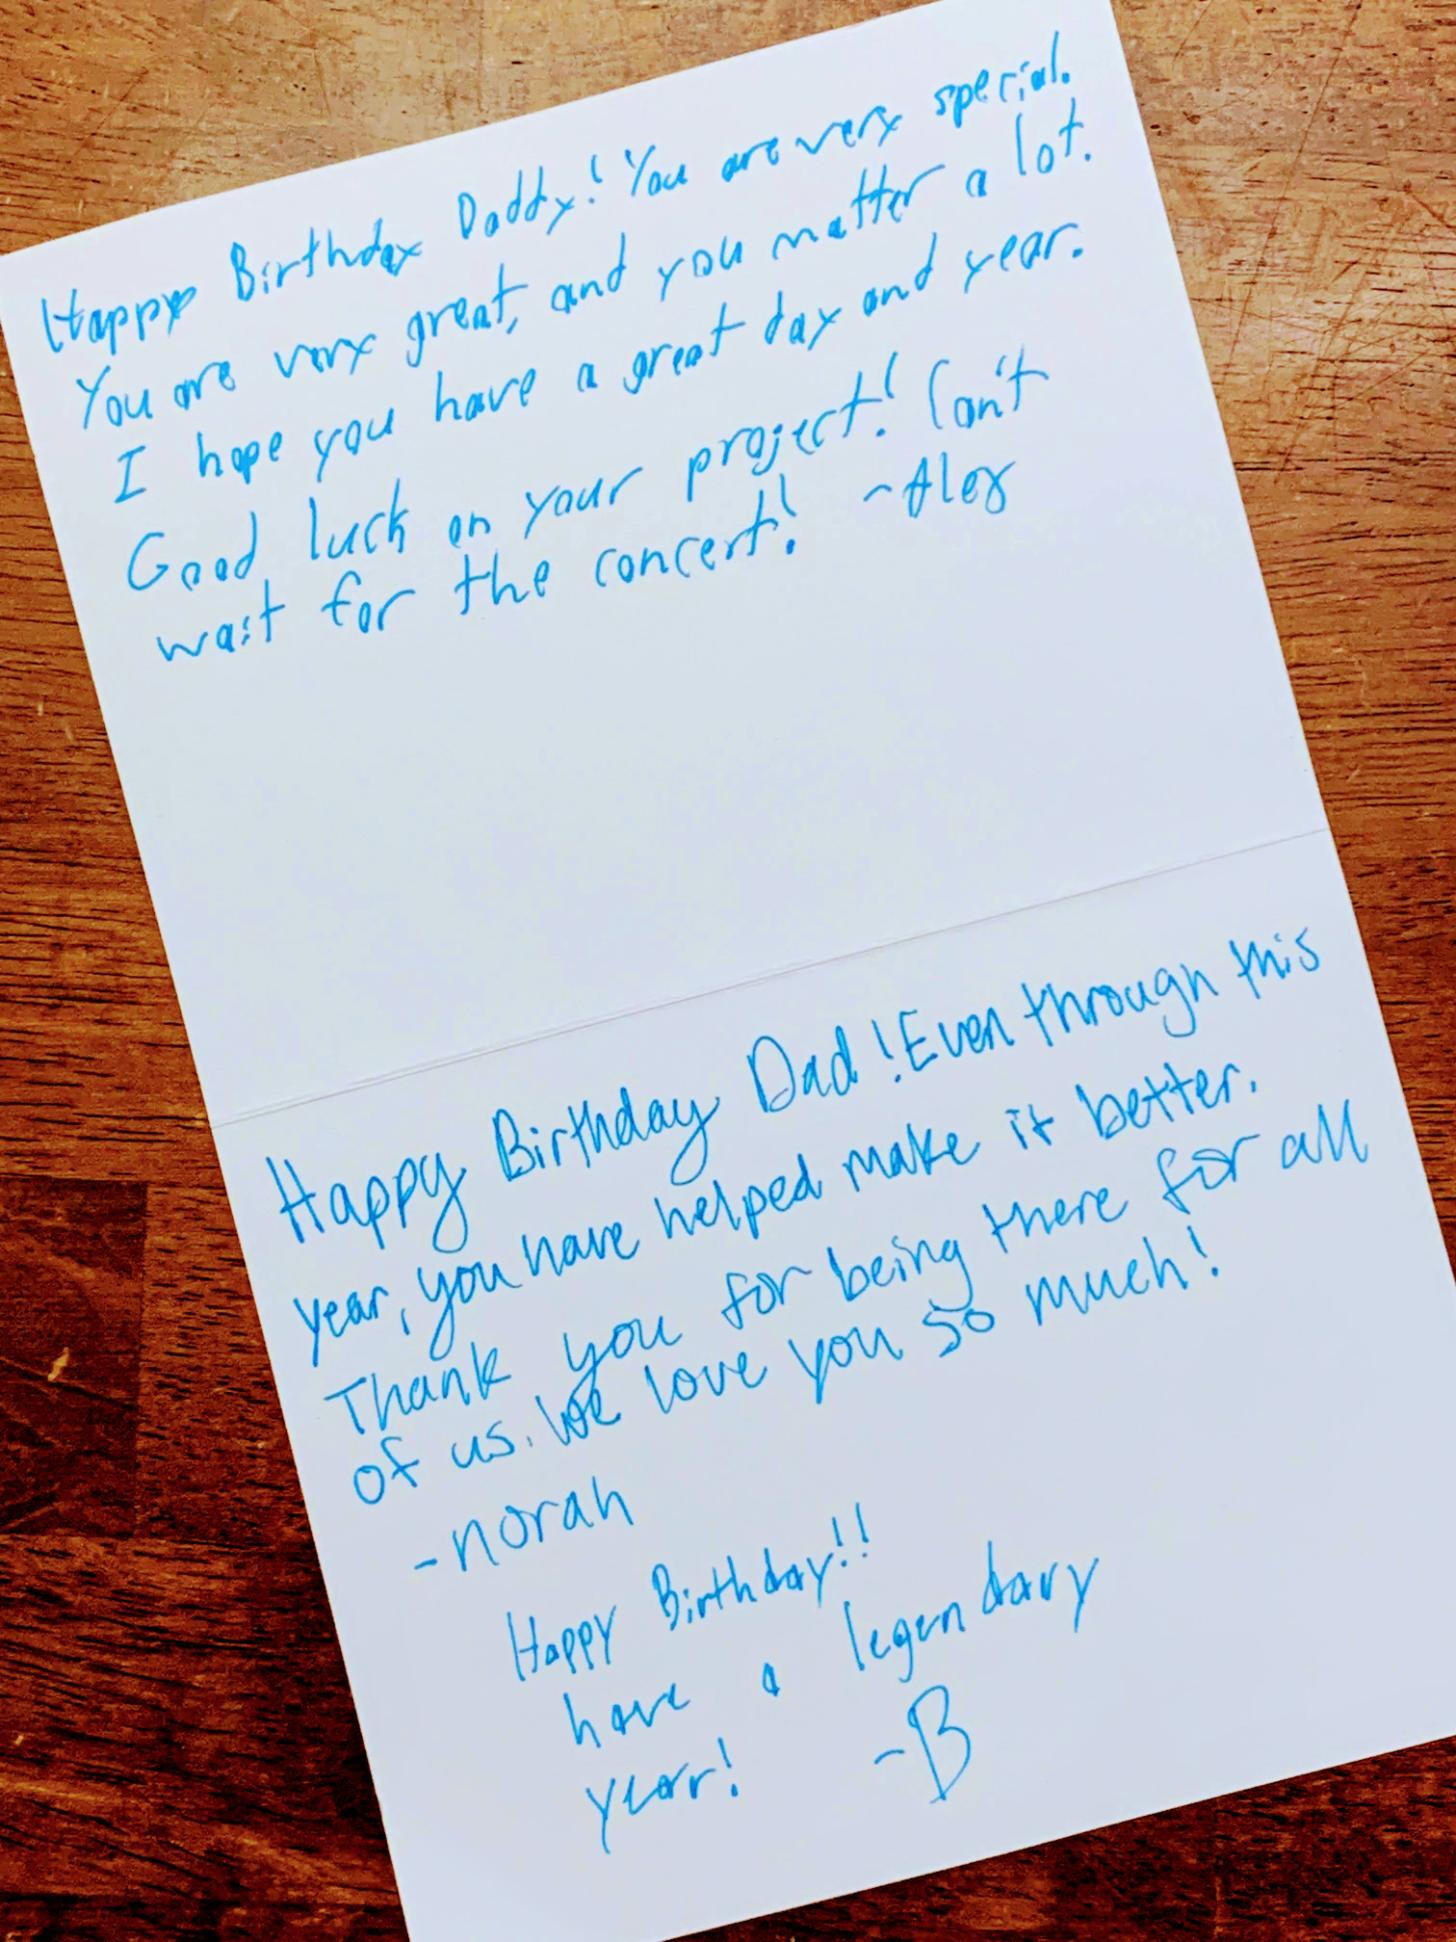 Happy Birthday Daddy! You are very special.
You are very great, and you matter a lot.
I hope you have a great day and year.
Good luck on your project! Can't
wait for the concert! ~Alex
Happy Birthday Dad! Even through this
year, you have helped make it better.
Thank you for being there for all
of us. We love you so much!
-norah
Happy Birthday!!
have a legendary
year! ~B